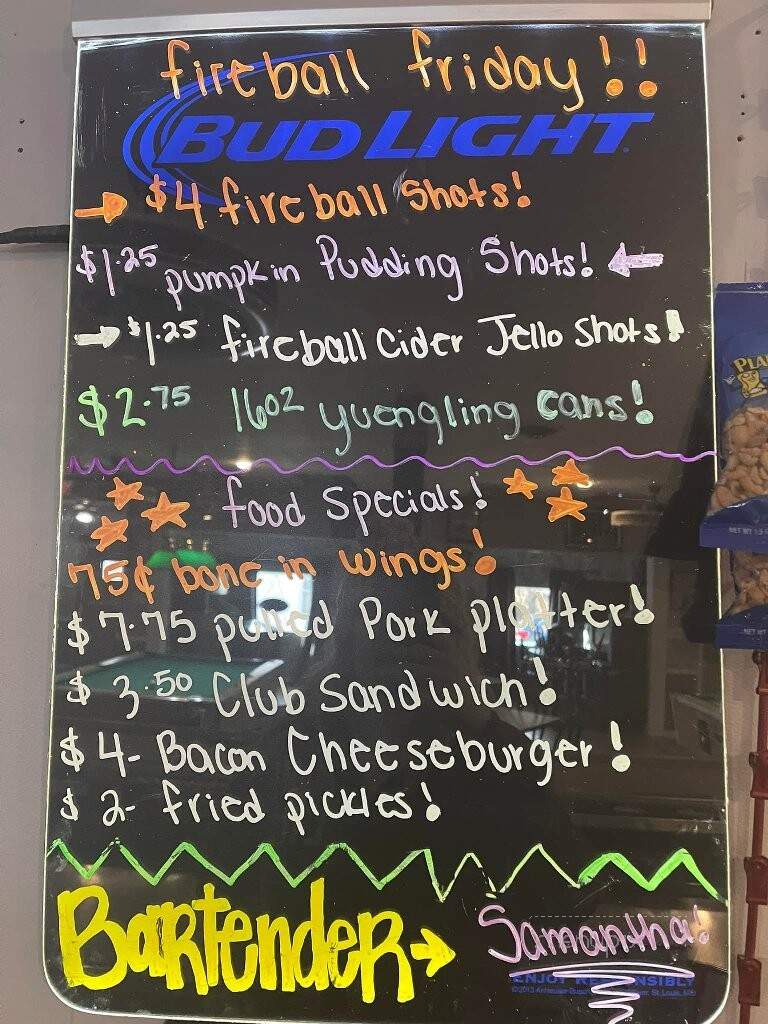 fireball friday!!
BUD LIGHT
→ $4 fireball Shots!
$1.25 pumpkin Pudding Shots! ←
→ $1.25 fireball Cider Jello Shots!
$2.75 16oz yuengling cans!
food Specials!
75¢ bone in wings!
$7.75 pulled Pork platter!
$3.50 Club Sandwich!
$4- Bacon Cheeseburger!
$2- fried pickles!
BARTENDER → Samantha!
ENJOY RESPONSIBLY